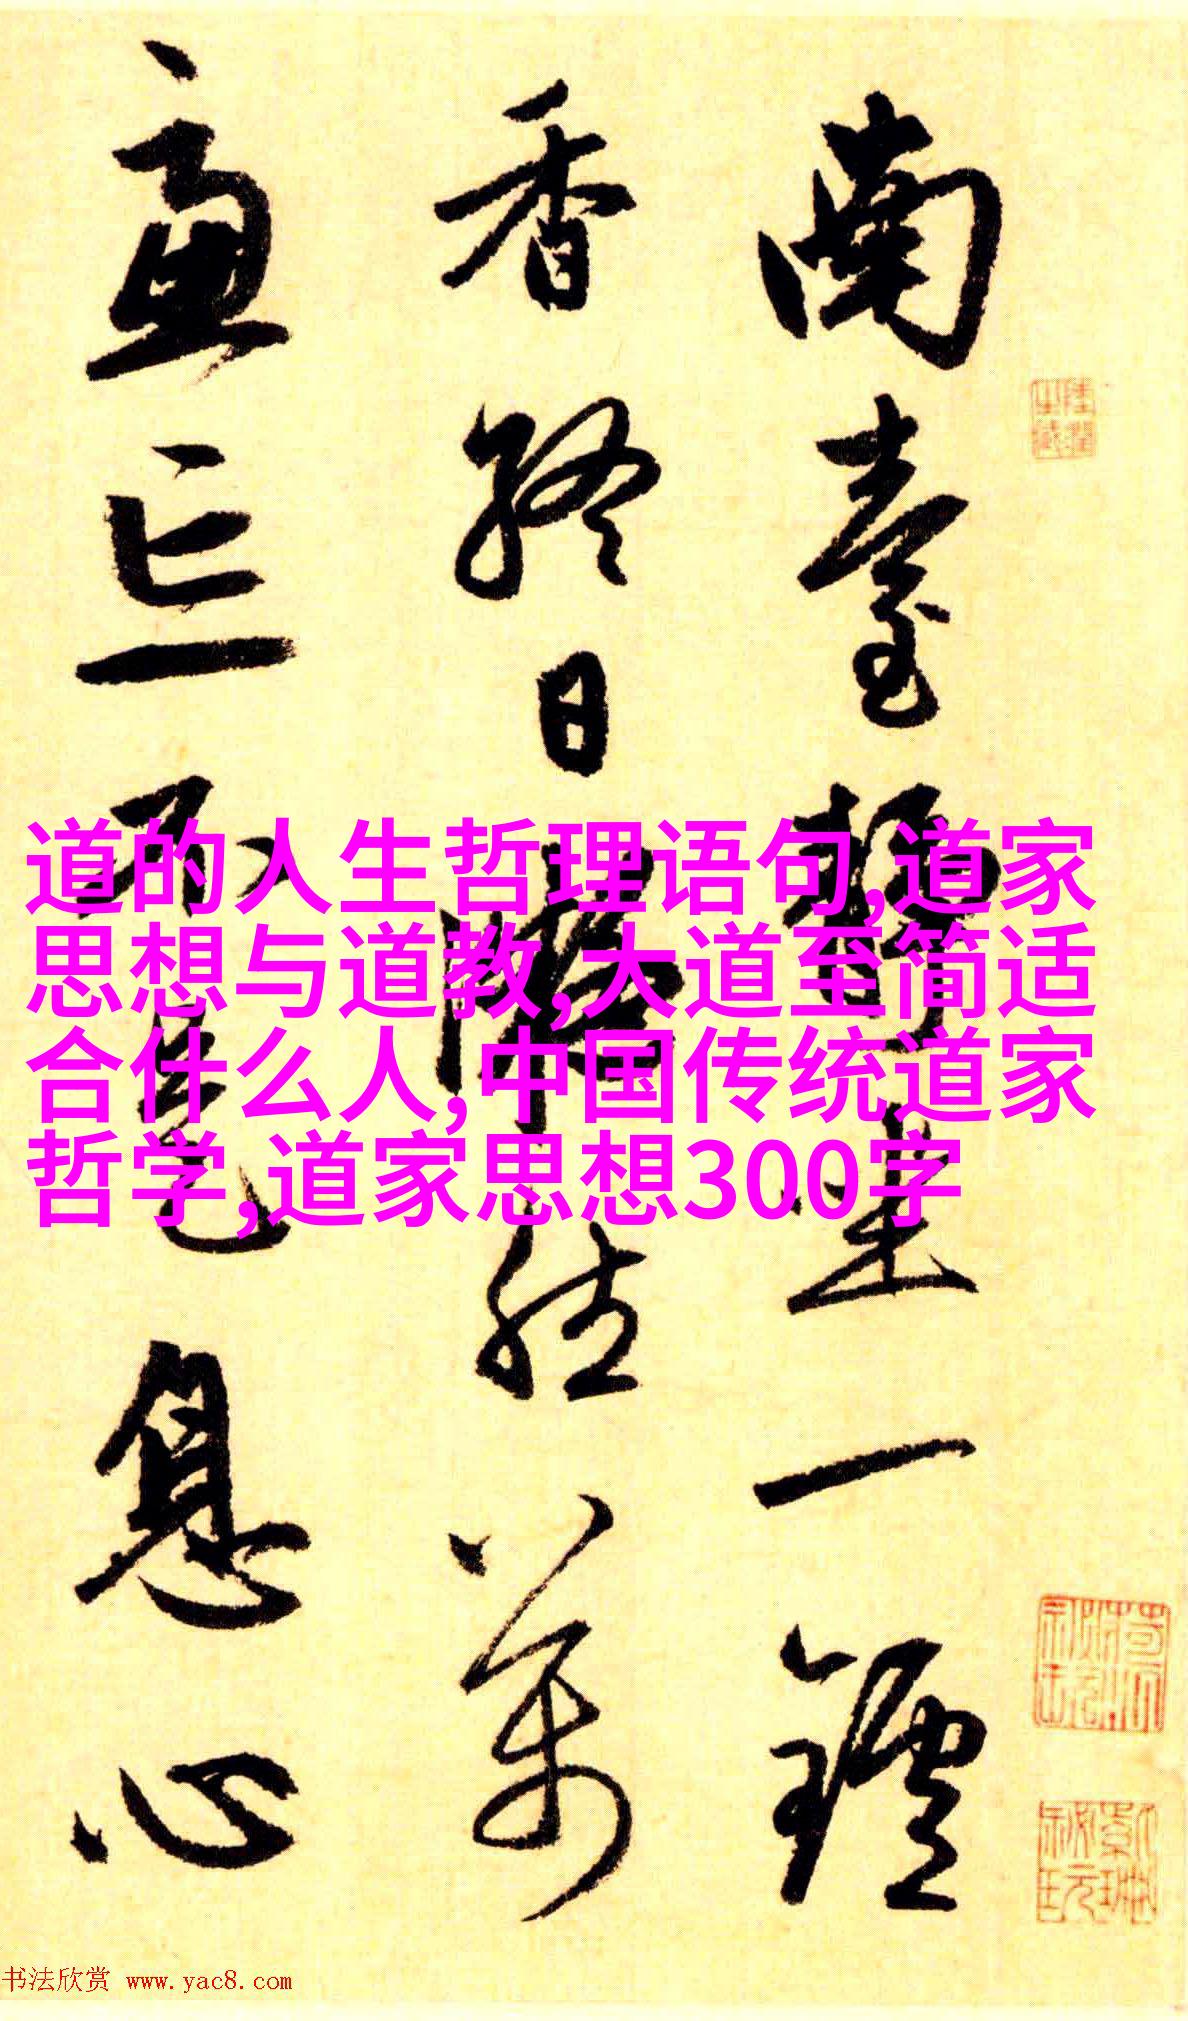 南臺靜坐一鑪
香終日凝然萬
慮忘不是息心
道的人生哲理语句,道家
思想与道教,大道至简适
合什么人,中国传统道家
哲学,道家思想300字
书法欣赏 www.yac8.com